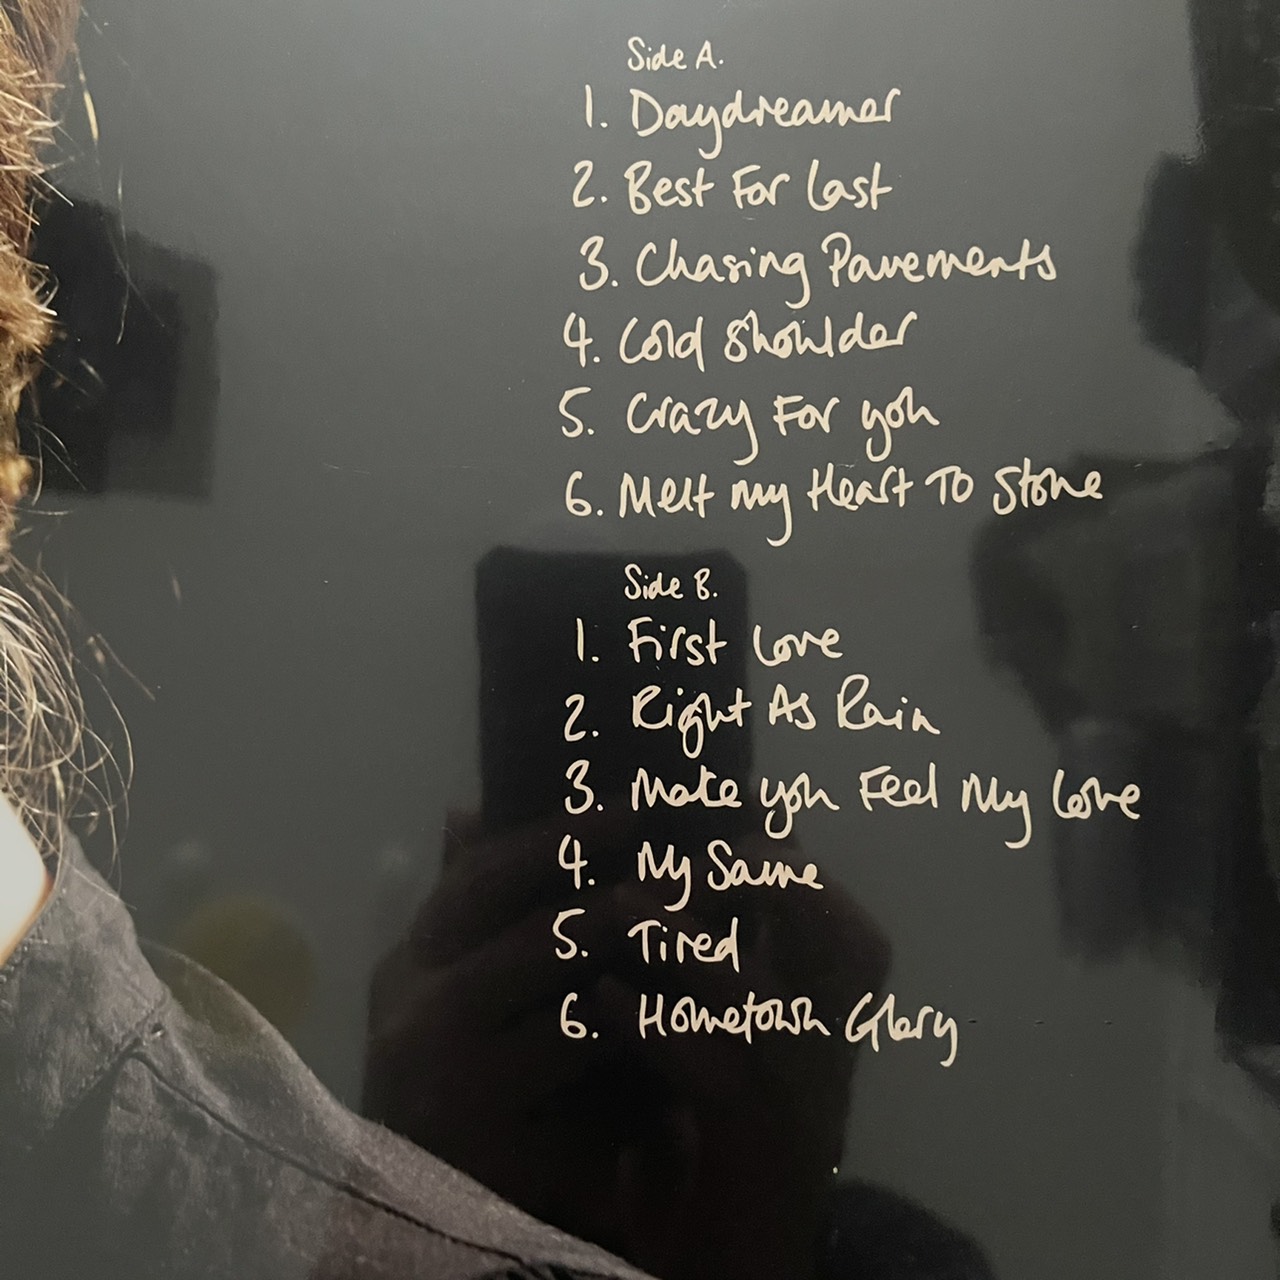 Side A.
1. Daydreamer
2. Best For Last
3. Chasing Pavements
4. Cold Shoulder
5. Crazy For you
6. Melt my Heart To Stone
Side B.
1. First Love
2. Right As Rain
3. Make you Feel My Love
4. My Same
5. Tired
6. Hometown Glory